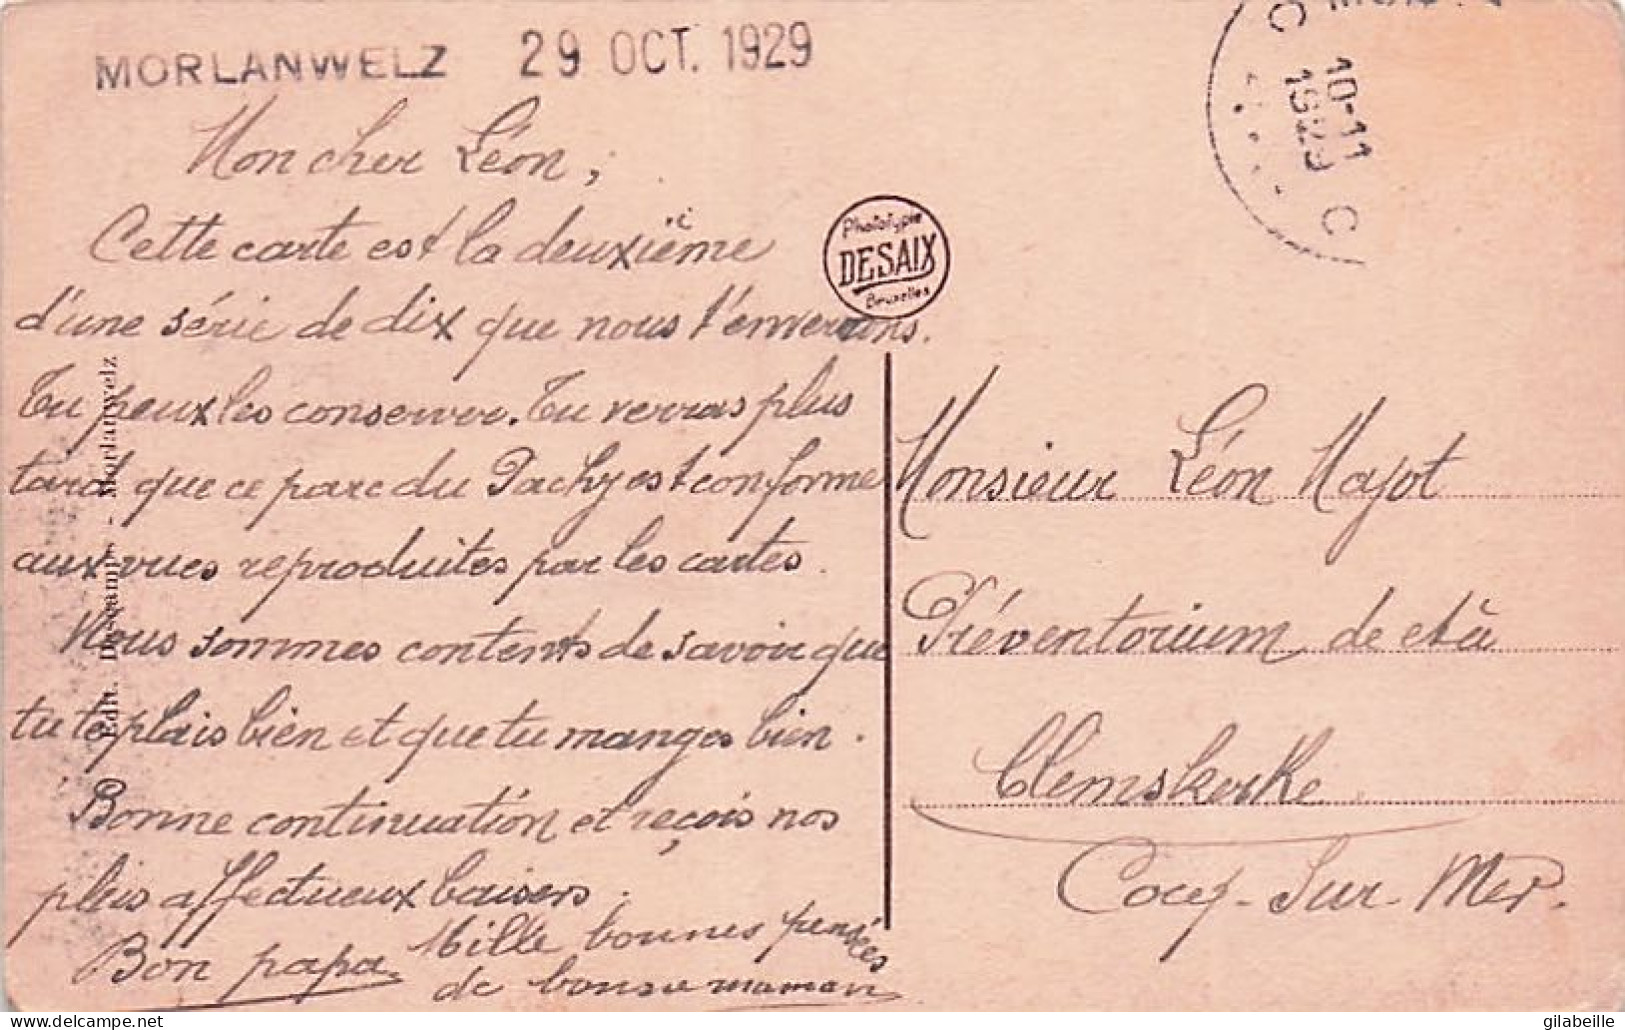 MORLANWELZ 29 OCT. 1929
10-11
1929
C C
Mon cher Léon,
Cette carte est la deuxième
d'une série de dix que nous t'enverrons.
Tu peux les conserver. Tu verras plus
tard que ce parc du Pachy est conforme
aux vues reproduites par les cartes.
Nous sommes contents de savoir que
tu te plais bien et que tu manges bien.
Bonne continuation et reçois nos
plus affectueux baisers.
Bon papa Mille bonnes pensées
de bonne maman
Phototypie
DESAIX
Bruxelles
Edit. Descamps - Morlanwelz
Monsieur Léon Majot
Préventorium de et à
Clemskerke
Cocq-Sur-Mer.
delcampe.net
gilabeille